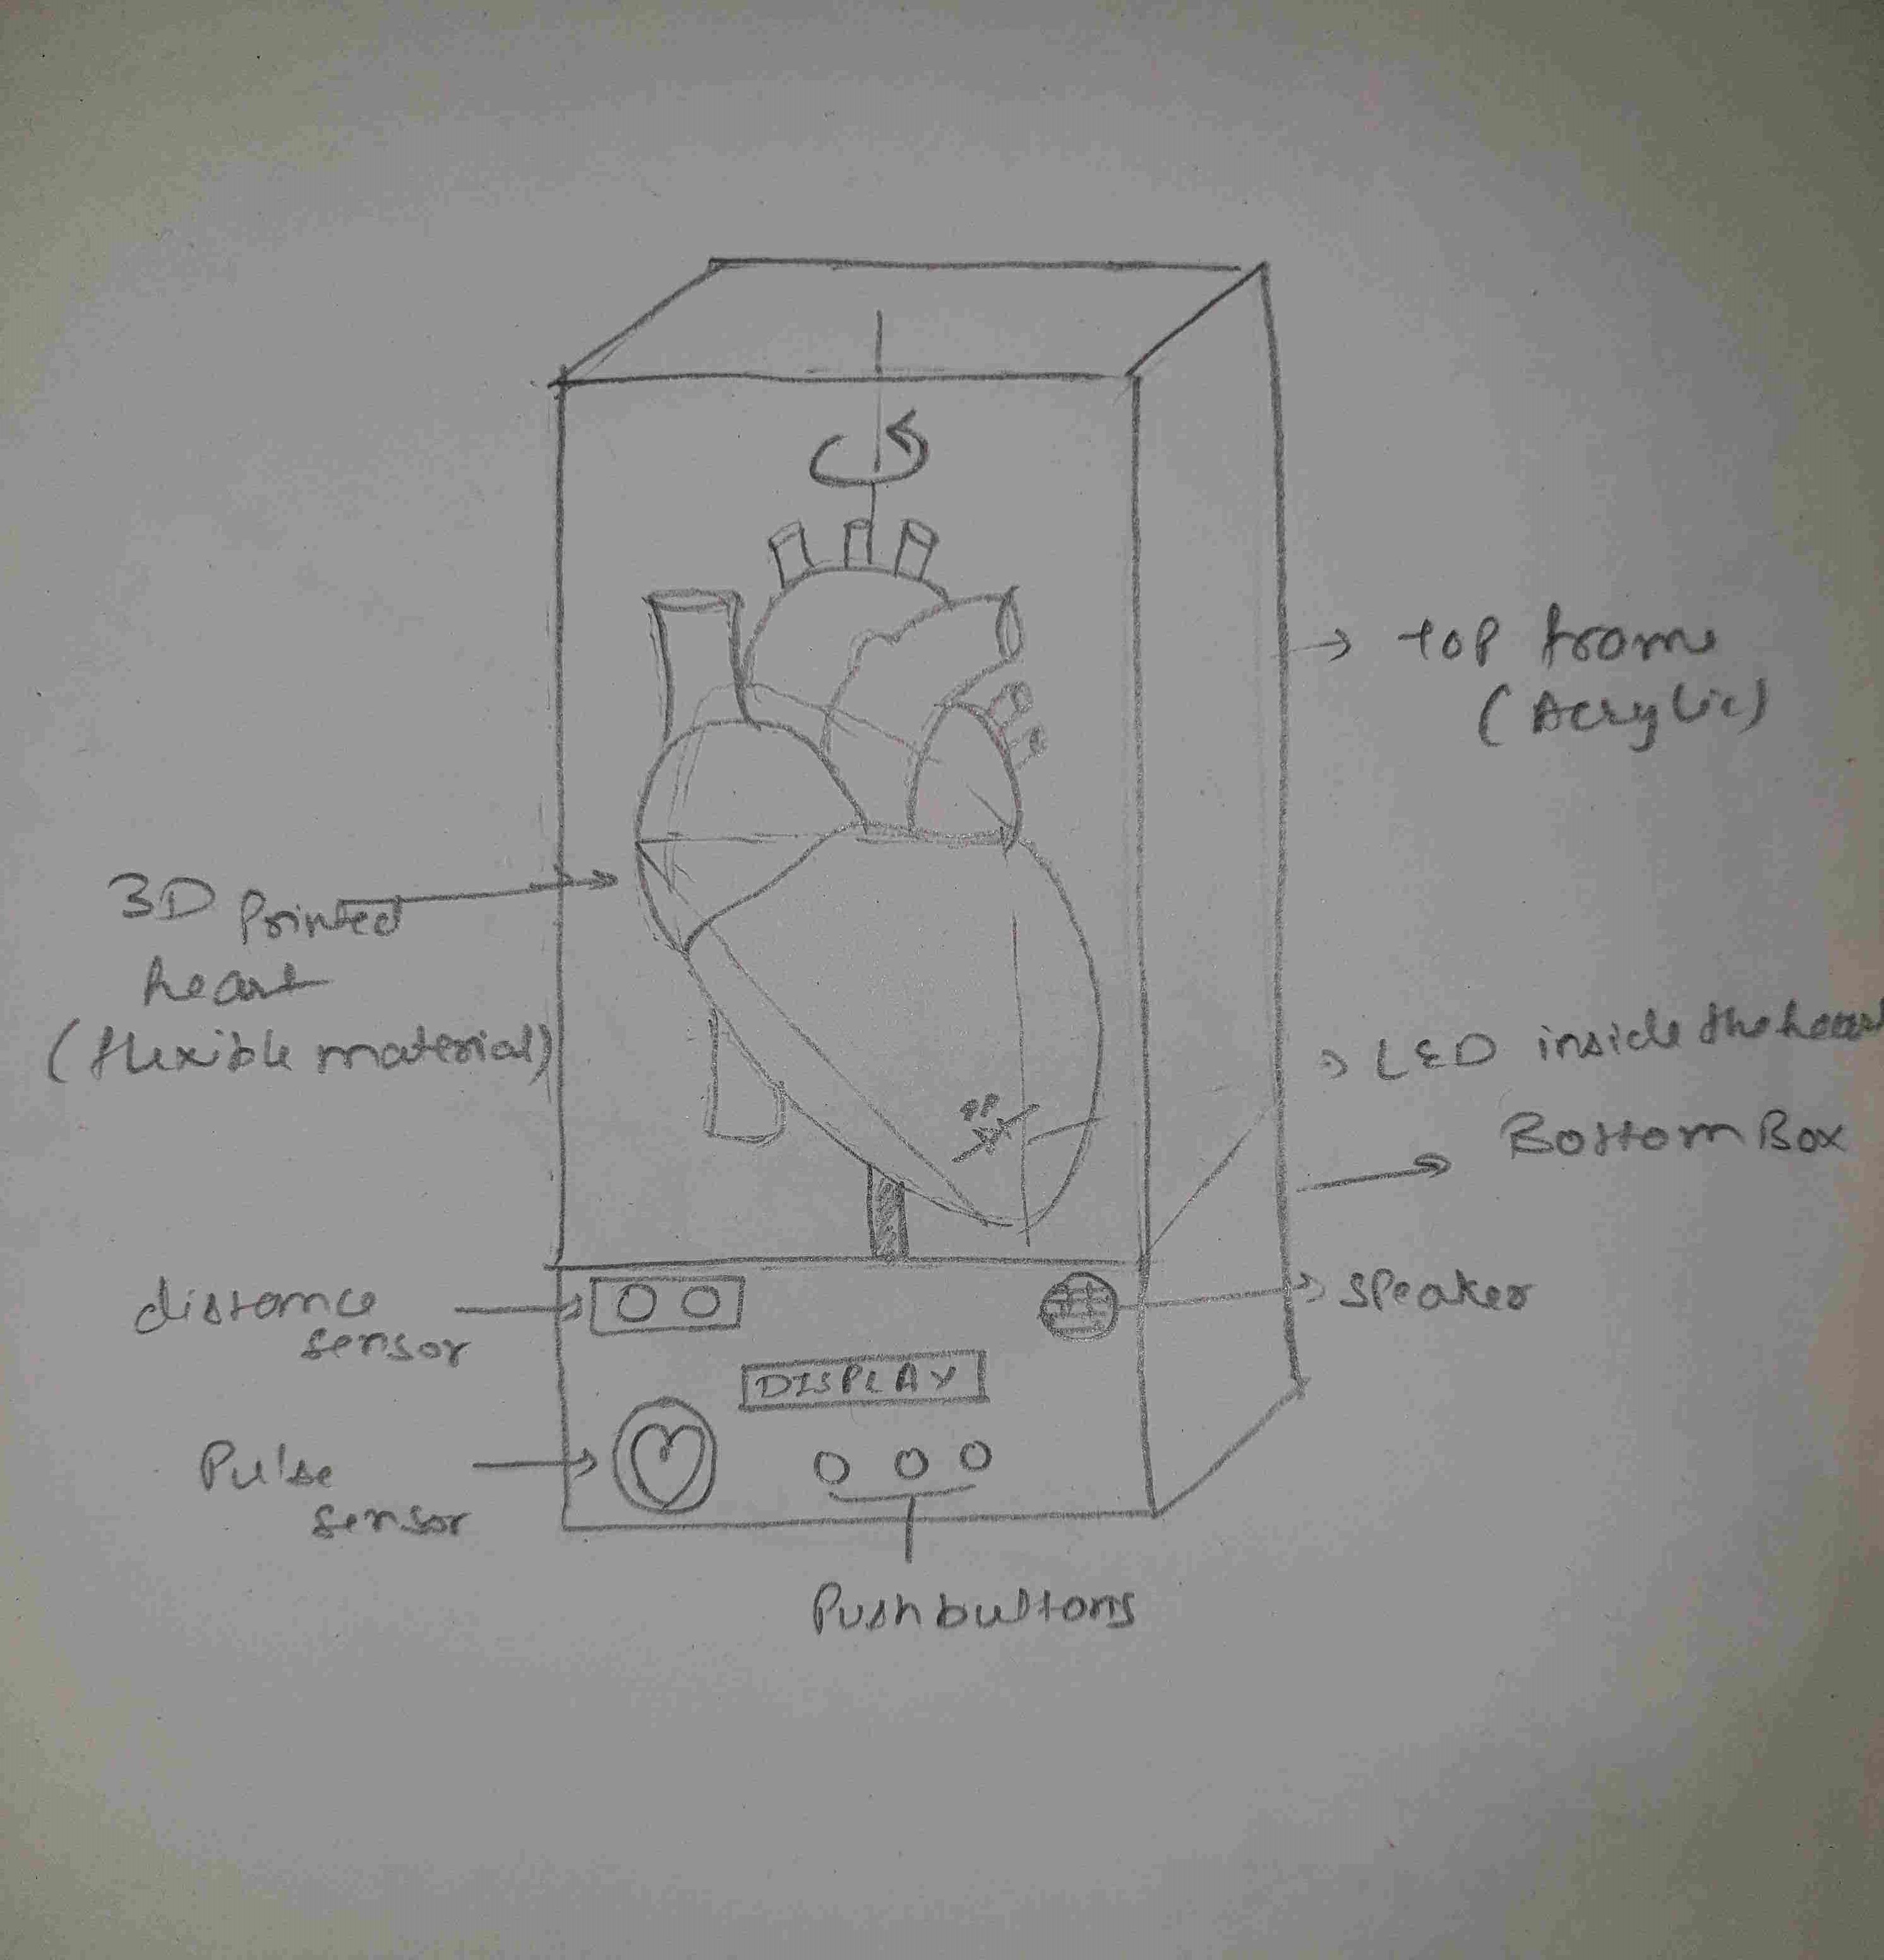 top frame
(Acrylic)
3D printed
heart
(flexible material)
LED inside the heart
Bottom Box
distance
sensor
speaker
DISPLAY
Pulse
sensor
Pushbuttons